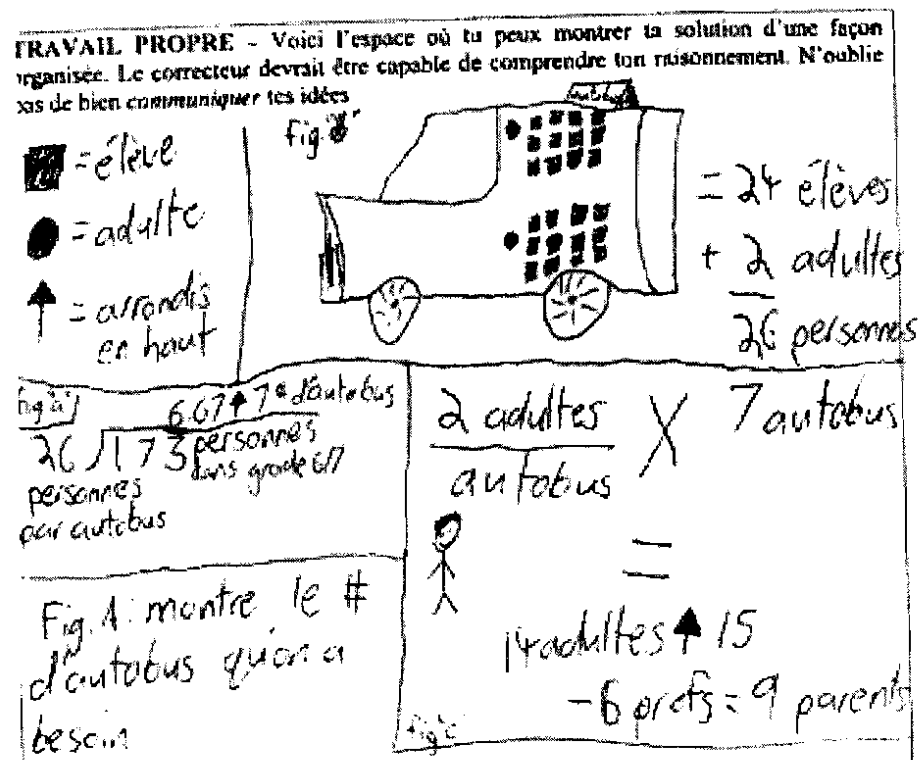 TRAVAIL PROPRE - Voici l'espace où tu peux montrer ta solution d'une façon
organisée. Le correcteur devrait être capable de comprendre ton raisonnement. N'oublie
pas de bien communiquer tes idées
= élève
= adulte
= arrondis
en haut
fig.
= 24 élèves
+ 2 adultes
26 personnes
fig a
6.67 ↑ 7 # d'autobus
26 √173 personnes
dans grade 6/7
personnes
par autobus
2 adultes X 7 autobus
autobus
=
14 adultes ↑ 15
- 6 profs = 9 parents
fig c
Fig. A: montre le #
d'autobus qu'on a
besoin